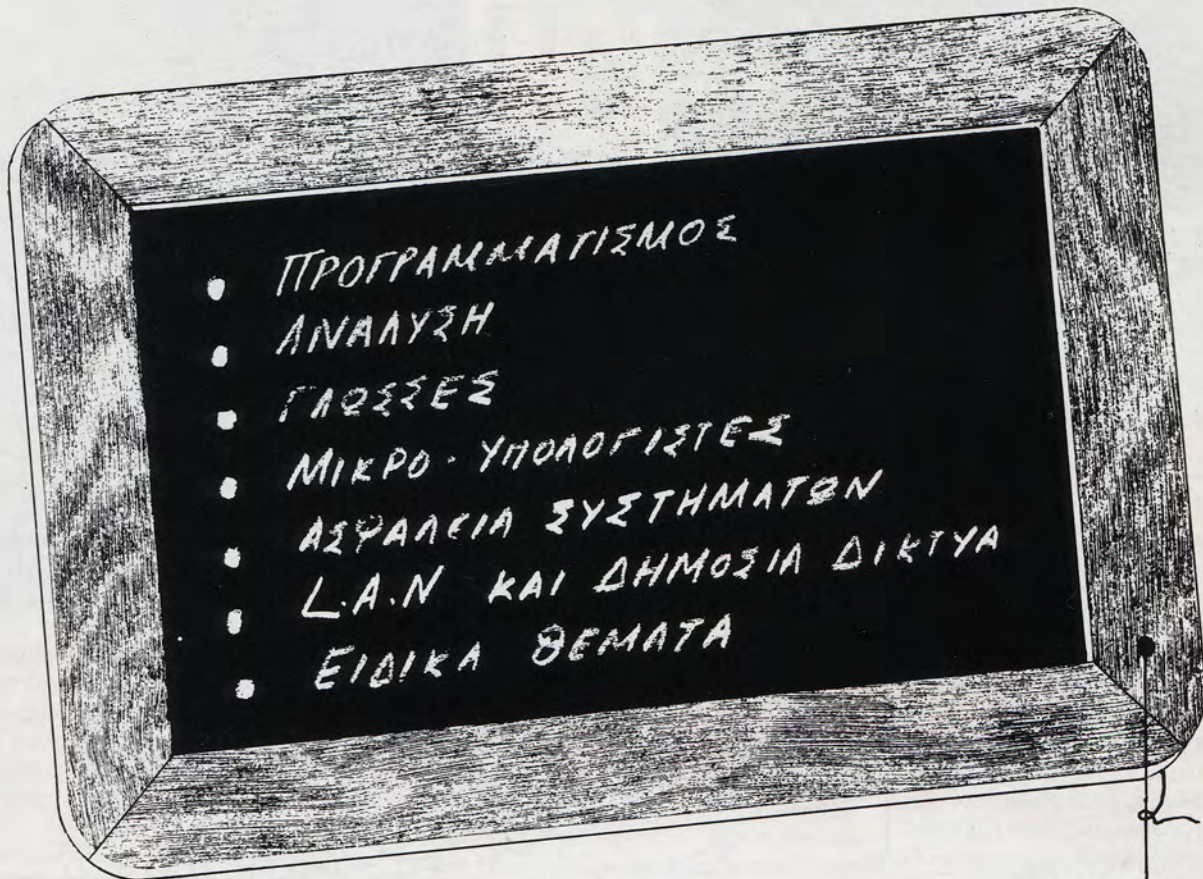 • ΠΡΟΓΡΑΜΜΑΤΙΣΜΟΣ
• ΑΝΑΛΥΣΗ
• ΓΛΩΣΣΕΣ
• ΜΙΚΡΟ-ΥΠΟΛΟΓΙΣΤΕΣ
• ΑΣΦΑΛΕΙΑ ΣΥΣΤΗΜΑΤΩΝ
• L.A.N ΚΑΙ ΔΗΜΟΣΙΑ ΔΙΚΤΥΑ
• ΕΙΔΙΚΑ ΘΕΜΑΤΑ